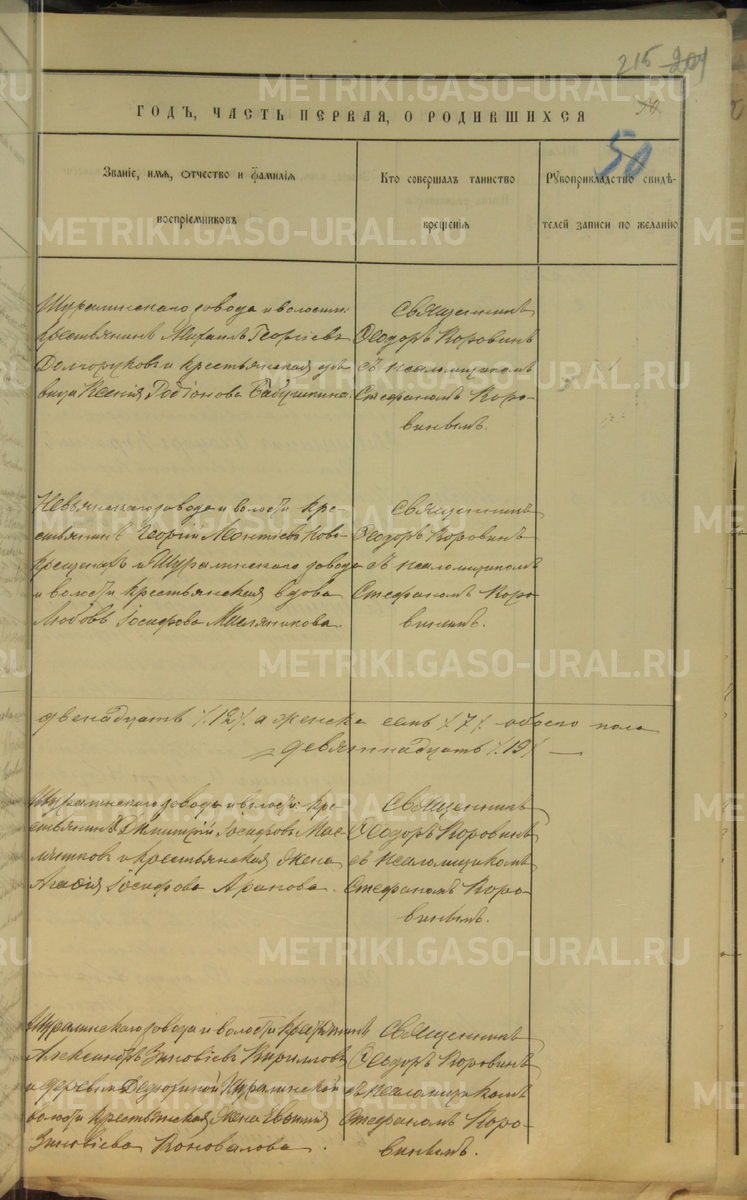 215 201
50
ГОДЪ, ЧАСТЬ ПЕРВАЯ, О РОДИВШИХСЯ
50
Званіе, имя, отчество и фамилія
воспріемниковъ
Кто совершалъ таинство
крещенія
Рукоприкладство свидѣ-
телей записи по желанію
Шуралинскаго завода и волости
крестьянинъ Михаилъ Георгіевъ
Долгоруковъ и крестьянская дѣ-
вица Ксенія Родіонова Бабушкина.
Священникъ
Ѳеодоръ Коровинъ
съ псаломщикомъ
Стефаномъ Коро-
винымъ.
Невьянскаго завода и волости кре-
стьянинъ Георгій Ново-
крещенъ и Шуралинскаго завода
и волости крестьянская вдова
Любовь Іосифова Масляникова.
Священникъ
Ѳеодоръ Коровинъ
съ псаломщикомъ
Стефаномъ Коро-
винымъ.
двенадцать /12/. а женска семь /7/. обоего пола
девятнадцать /19/
Шуралинскаго завода и волости кре-
стьянинъ Димитрій Іосифовъ Мас-
и крестьянская жена
Агаѳія Іосифова Арапова.
Священникъ
Ѳеодоръ Коровинъ
съ псаломщикомъ
Стефаномъ Коро-
винымъ.
Шуралинскаго завода и волости крестьянинъ
Александръ Зиновіевъ Кирилловъ
и деревни Шуралинской
волости крестьянская жена Евѳимія
Зиновіева Коновалова.
Священникъ
Ѳеодоръ Коровинъ
съ псаломщикомъ
Стефаномъ Коро-
винымъ.
METRIKI.GASO-URAL.RU
METRIKI.GASO-URAL.RU
METRIKI.GASO-URAL.RU
METRIKI.GASO-URAL.RU
METRIKI.GASO-URAL.RU
METRIKI.GASO-URAL.RU
METRIKI.GASO-URAL.RU
METRIKI.GASO-URAL.RU